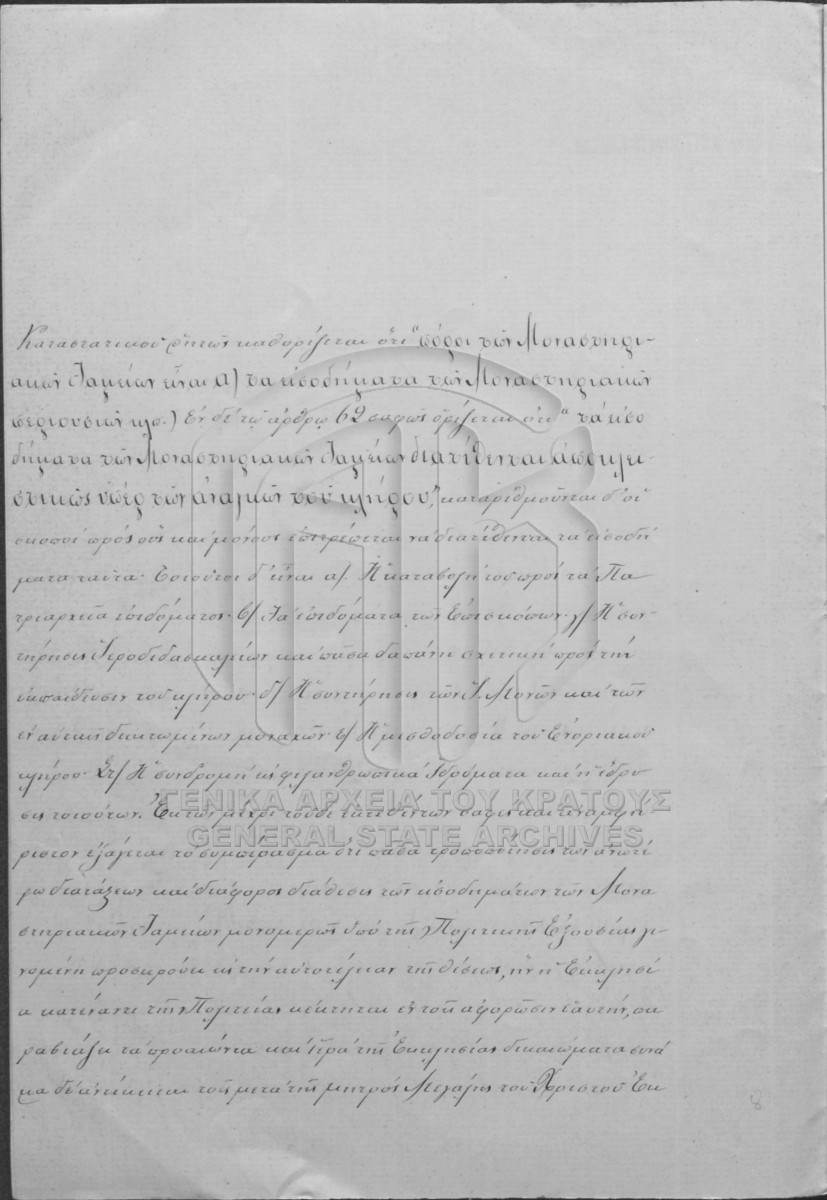 Καταστατικοῦ ρητῶς καθορίζεται ὅτι "πόροι τῶν Μοναστηρι-
ακῶν Ταμείων εἶναι α) τα εἰσοδήματα τῶν Μοναστηριακῶν
περιουσιῶν κλπ.) Ἐν δὲ τῷ ἄρθρῳ 62 σαφῶς ὁρίζεται ὅτι "τὰ εἰσο
δήματα τῶν Μοναστηριακῶν Ταμείων διατίθενται ἀποκλει-
στικῶς ὑπέρ τῶν ἀναγκῶν τοῦ κλήρου", καταριθμοῦνται δ' οἱ
σκοποί πρός οὓς καί μόνους ἐπιτρέπεται νά διατίθενται τά εἰσοδή
ματα ταῦτα. Τοιοῦτοι δ' εἶναι α/. Ἡ καταβολή τοῦ πρός τά Πα
τριαρχεῖα ἐπιδόματος. β/ Τά ἐπιδόματα τῶν Ἐπισκόπων. γ/ Ἡ συν-
τήρησις Ἱεροδιδασκαλείων καί πᾶσα δαπάνη σχετική πρός τήν
ἐκπαίδευσιν τοῦ κλήρου. δ/ Ἡ συντήρησις τῶν Ἱ. Μονῶν καί τῶν
ἐν αὐταῖς μονα­χῶν. ε/ Ἡ μισθοδοσία τοῦ Ἐνοριακοῦ
κλήρου. Στ/ Ἡ συνδρομή εἰς φιλανθρωπικά Ἱδρύματα καί ἡ ἵδρυ
σις τοιούτων. Ἐκ τῶν μέχρι τοῦδε ἐκτεθέντων σαφές καί ἀναμφή
ριστον ἐξάγεται τό συμπέρασμα ὅτι πᾶσα τροποποίησις τῶν ἀνωτέ
ρω διατάξεων καί διάφορος διάθεσις τῶν εἰσοδημάτων τῶν Μονα
στηριακῶν Ταμείων μονομερῶς ὑπό τῆς Πολιτικῆς Ἐξουσίας γι-
νομένη προσκρούει εἰς τήν αὐτοτέλειαν τῆς θέσεως, ἥν ἡ Ἐκκλησί
α κατέναντι τῆς Πολιτείας κέκτηται ἐν τοῖς ἀφορῶσιν ἑαυτήν, πα
ραβιάζει τά προαιώνια καί Ἱερά τῆς Ἐκκλησίας δικαιώματα συνά
μα δέ ἀντίκειται τοῖς μετά τῆς μητρός Μεγάλης τοῦ Χριστοῦ Ἐκ
8
ΓΕΝΙΚΑ ΑΡΧΕΙΑ ΤΟΥ ΚΡΑΤΟΥΣ
GENERAL STATE ARCHIVES